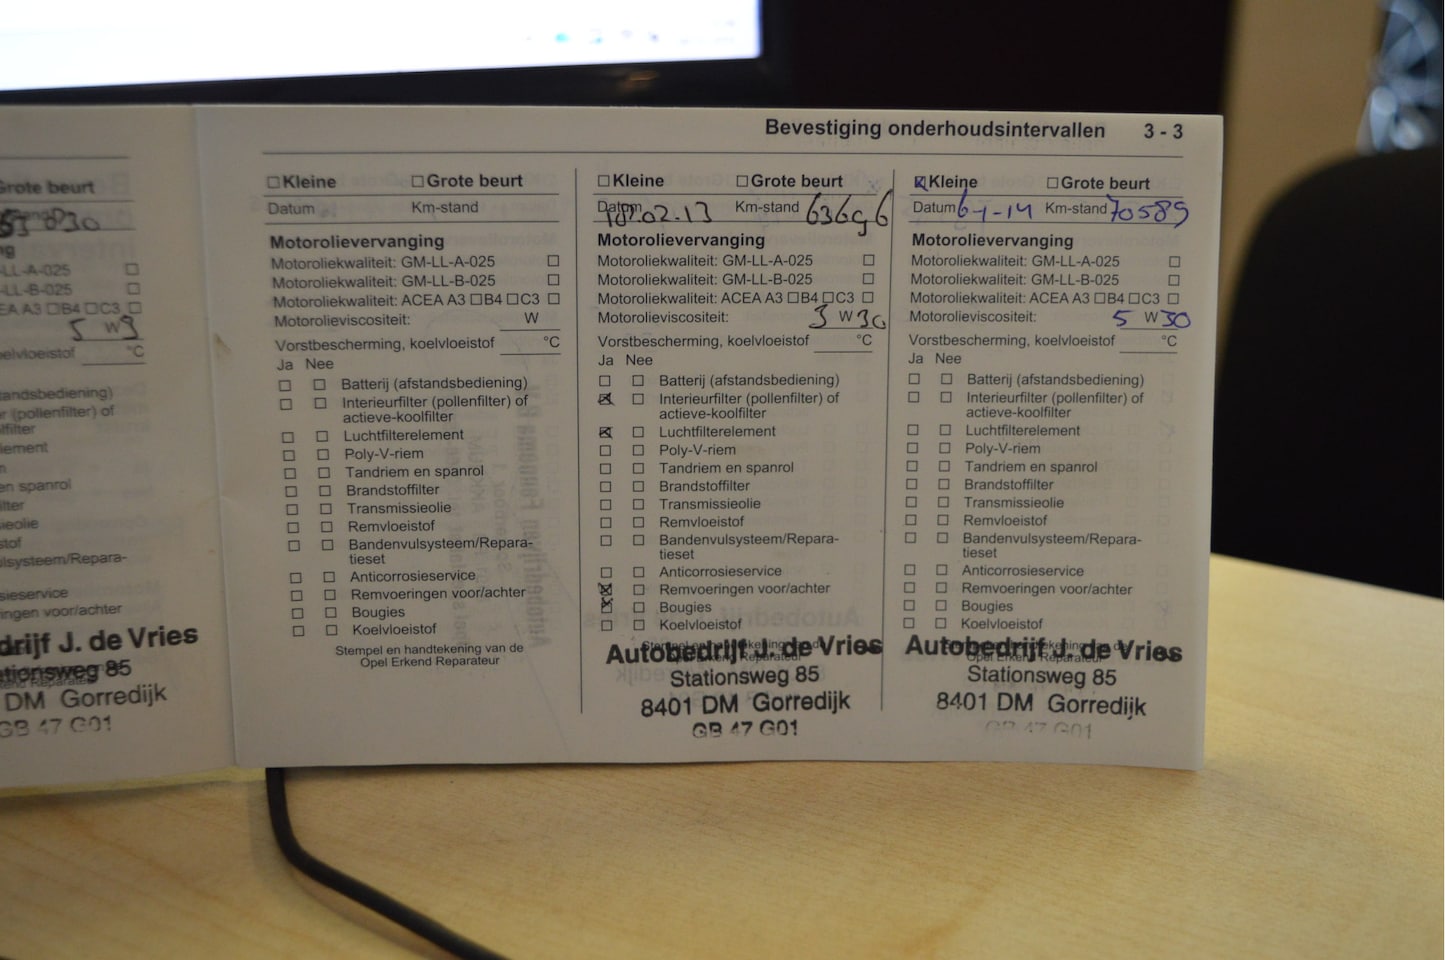 Bevestiging onderhoudsintervallen 3 - 3
Grote beurt
LL-A-025
LL-B-025
A3 B4 C3
5 W
°C
drijf J. de Vries
tionsweg 85
DM Gorredijk
GB 47 G01
Kleine Grote beurt
Datum Km-stand
Motorolievervanging
Motoroliekwaliteit: GM-LL-A-025
Motoroliekwaliteit: GM-LL-B-025
Motoroliekwaliteit: ACEA A3 B4 C3
Motorolieviscositeit: W
Vorstbescherming, koelvloeistof °C
Ja Nee
Batterij (afstandsbediening)
Interieurfilter (pollenfilter) of
actieve-koolfilter
Luchtfilterelement
Poly-V-riem
Tandriem en spanrol
Brandstoffilter
Transmissieolie
Remvloeistof
Bandenvulsysteem/Repara-
tieset
Anticorrosieservice
Remvoeringen voor/achter
Bougies
Koelvloeistof
Stempel en handtekening van de
Opel Erkend Reparateur
Kleine Grote beurt
Datum 02.13 Km-stand 63696
Motorolievervanging
Motoroliekwaliteit: GM-LL-A-025
Motoroliekwaliteit: GM-LL-B-025
Motoroliekwaliteit: ACEA A3 B4 C3
Motorolieviscositeit: W 30
Vorstbescherming, koelvloeistof °C
Ja Nee
Batterij (afstandsbediening)
Interieurfilter (pollenfilter) of
actieve-koolfilter
Luchtfilterelement
Poly-V-riem
Tandriem en spanrol
Brandstoffilter
Transmissieolie
Remvloeistof
Bandenvulsysteem/Repara-
tieset
Anticorrosieservice
Remvoeringen voor/achter
Bougies
Koelvloeistof
Autobedrijf J. de Vries
Stationsweg 85
8401 DM Gorredijk
GB 47 G01
Kleine Grote beurt
Datum 6-1-14 Km-stand 70589
Motorolievervanging
Motoroliekwaliteit: GM-LL-A-025
Motoroliekwaliteit: GM-LL-B-025
Motoroliekwaliteit: ACEA A3 B4 C3
Motorolieviscositeit: 5 W 30
Vorstbescherming, koelvloeistof °C
Ja Nee
Batterij (afstandsbediening)
Interieurfilter (pollenfilter) of
actieve-koolfilter
Luchtfilterelement
Poly-V-riem
Tandriem en spanrol
Brandstoffilter
Transmissieolie
Remvloeistof
Bandenvulsysteem/Repara-
tieset
Anticorrosieservice
Remvoeringen voor/achter
Bougies
Koelvloeistof
Autobedrijf J. de Vries
Stationsweg 85
8401 DM Gorredijk
GB 47 G01